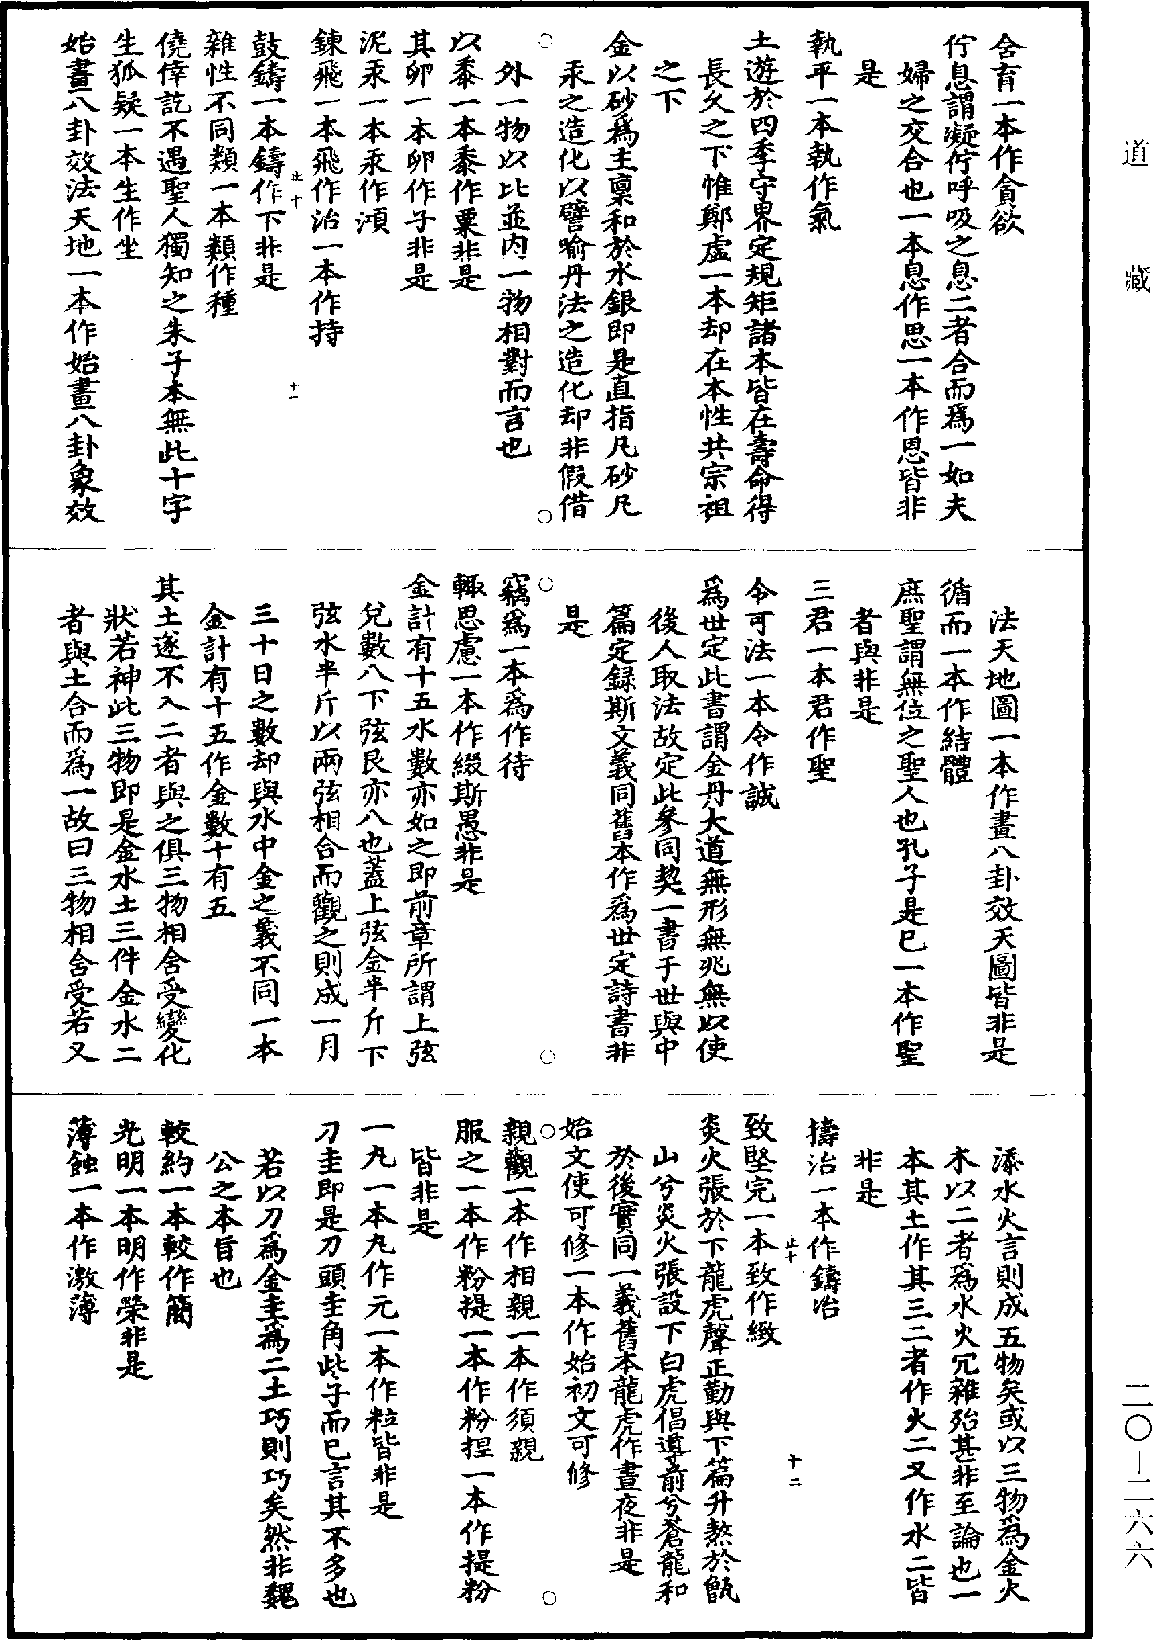 道藏
含育一本作貪欲
佇息謂凝佇呼吸之息二者合而爲一如夫
婦之交合也一本息作思一本作恩皆非
是
執平一本執作氣
土遊於四季守界定規矩諸本皆在壽命得
長久之下惟鄭虛一本却在本性共宗祖
之下
金以砂爲主稟和於水銀即是直指凡砂凡
汞之造化以譬喻丹法之造化却非假借
外一物以比並内一物相對而言也
以黍一本黍作粟非是
其卵一本卵作子非是
泥汞一本汞作澒
鍊飛一本飛作治一本作持
鼓鑄一本鑄作下非是
雜性不同類一本類作種
僥倖訖不遇聖人獨知之朱子本無此十字
生狐疑一本生作坐
始畫八卦效法天地一本作始畫八卦象效
法天地圖一本作畫八卦效天圖皆非是
循而一本作結體
庶聖謂無位之聖人也孔子是巳一本作聖
者與非是
三君一本君作聖
令可法一本令作誠
爲世定此書謂金丹大道無形無兆無以使
後人取法故定此參同契一書于世與中
篇定録斯文義同舊本作爲世定詩書非
是
竊爲一本爲作待
輙思慮一本作綴斯愚非是
金計有十五水數亦如之即前章所謂上弦
兌數八下弦艮亦八也蓋上弦金半斤下
弦水半斤以兩弦相合而觀之則成一月
三十日之數却與水中金之義不同一本
金計有十五作金數十有五
其土遂不入二者與之俱三物相含受變化
狀若神此三物即是金水土三件金水二
者與土合而爲一故曰三物相含受若又
添水火言則成五物矣或以三物爲金火
木以二者爲水火冗雜殆甚非至論也一
本其土作其三二者作火二又作水二皆
非是
擣治一本作鑄冶
致堅完一本致作緻
炎火張於下龍虎聲正勤與下篇升熬於甑
山兮炎火張設下白虎倡導前兮蒼龍和
於後實同一義舊本龍虎作晝夜非是
始文使可修一本作始初文可修
親觀一本作相親一本作須親
服之一本作粉提一本作粉捏一本作提粉
皆非是
一丸一本丸作元一本作粒皆非是
刀圭即是刀頭圭角些子而巳言其不多也
若以刀爲金圭爲二土巧則巧矣然非魏
公之本旨也
較約一本較作簡
光明一本明作榮非是
薄蝕一本作激薄
止十
十一
止十
十二
二〇－二六六